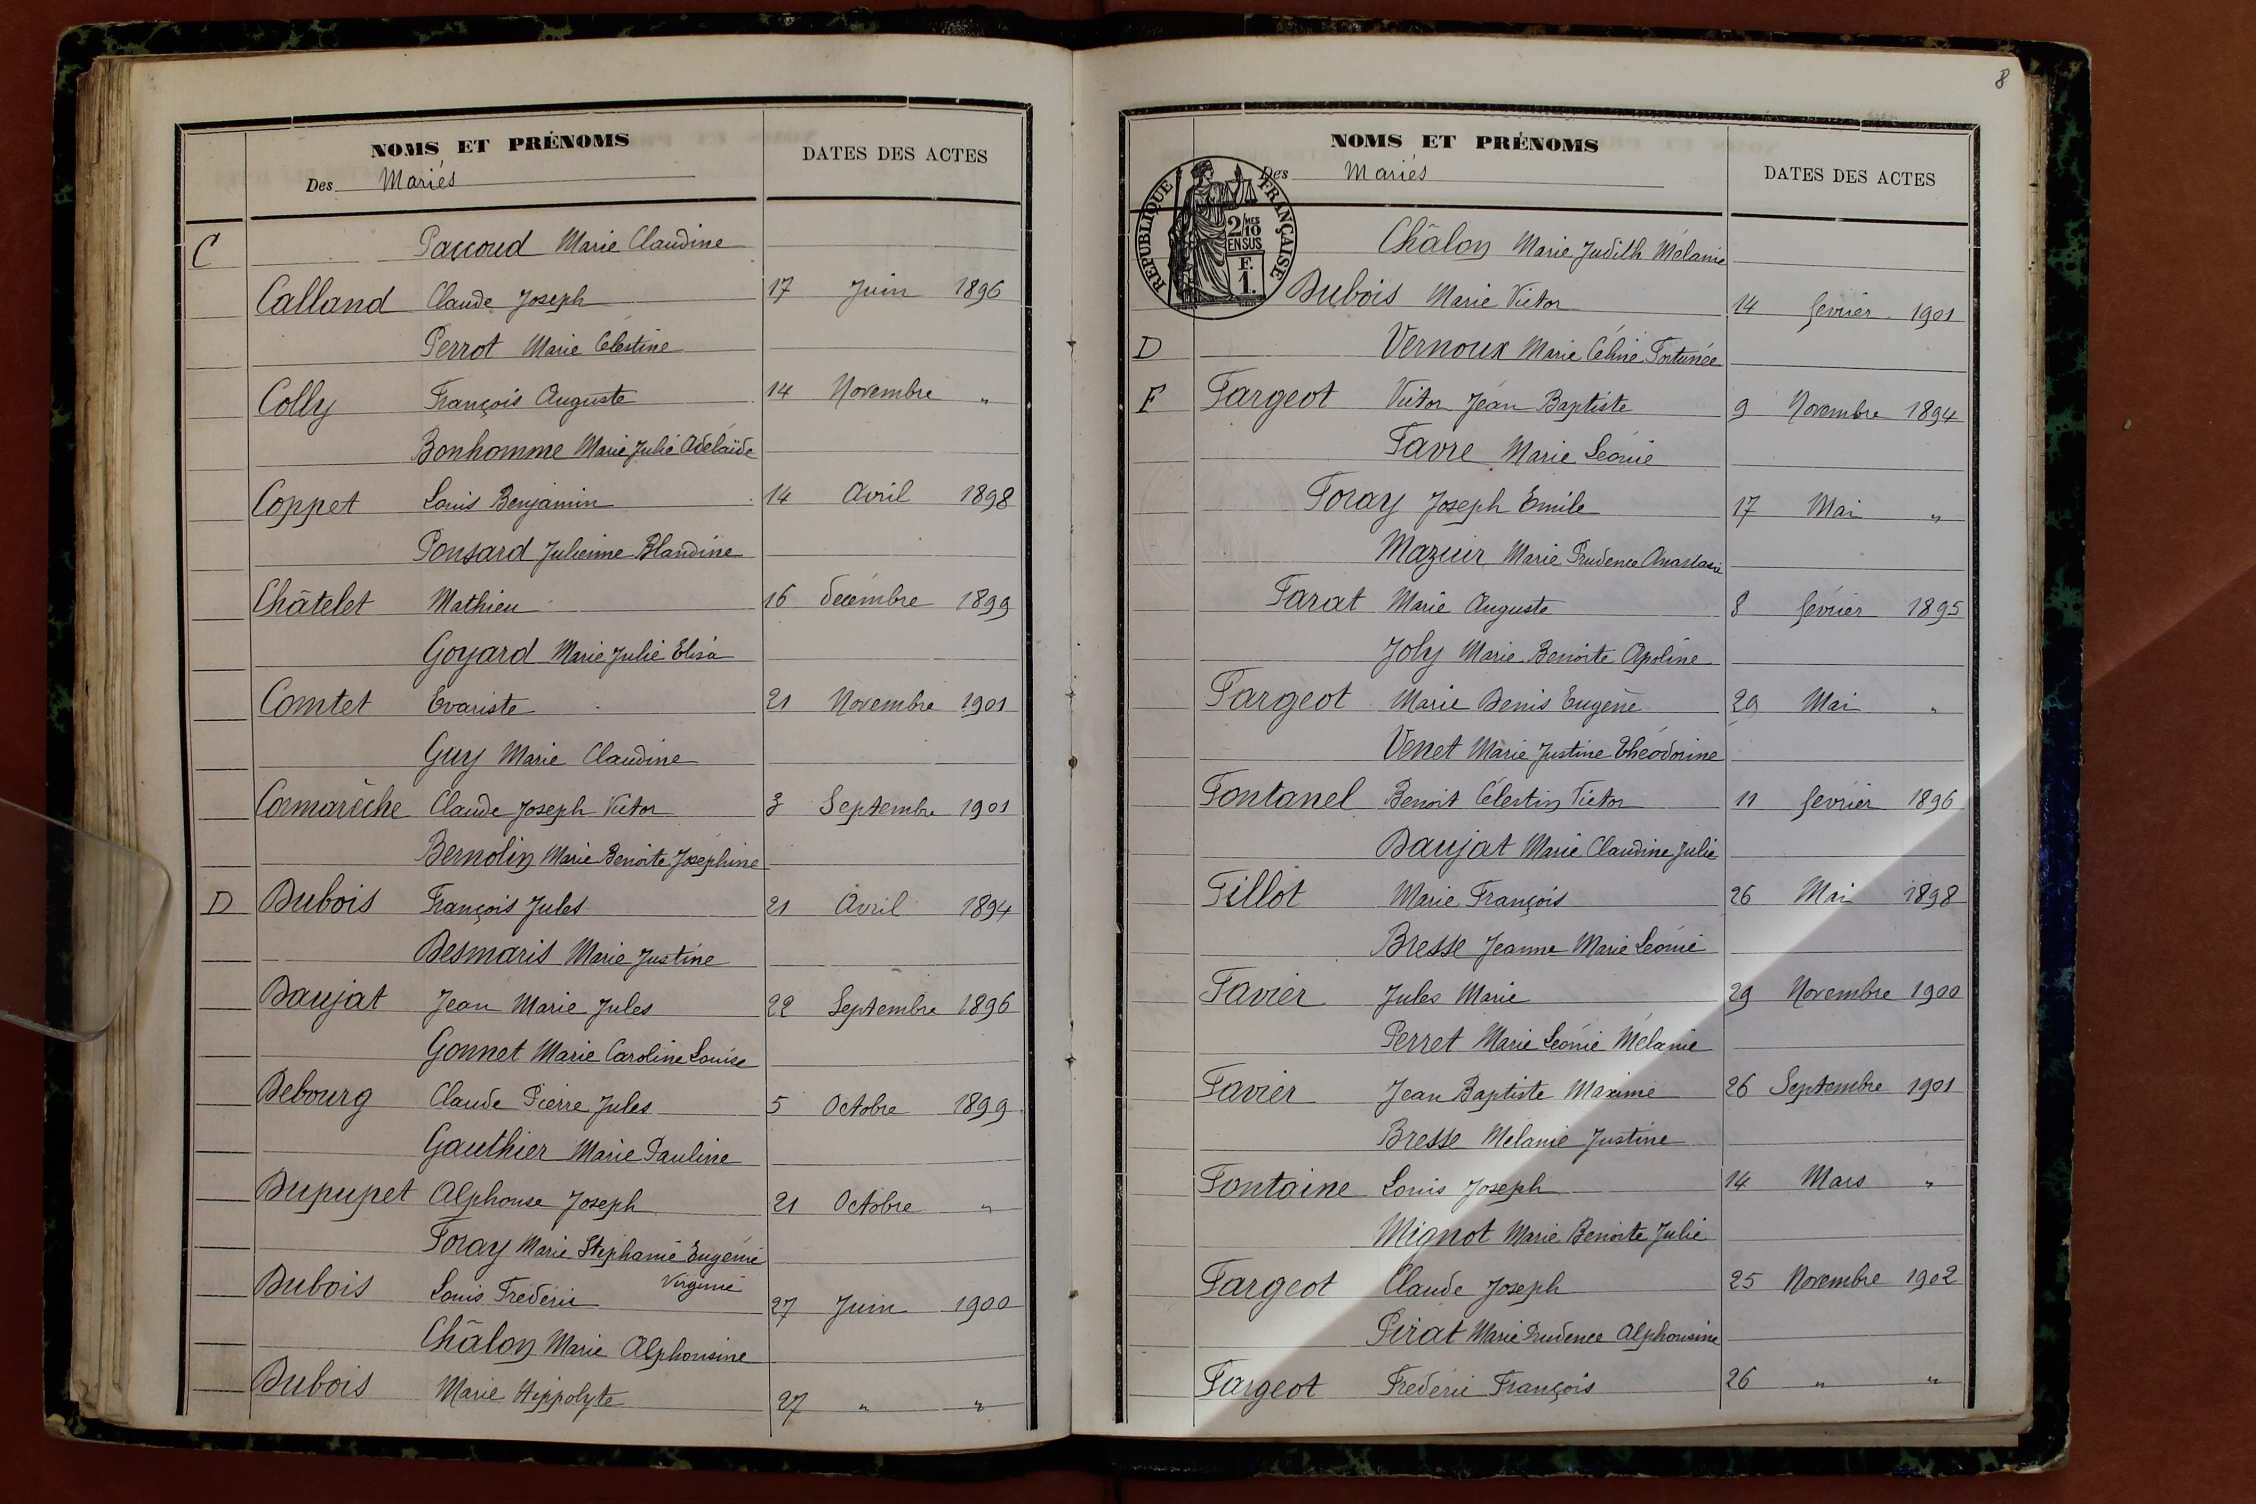 NOMS ET PRÉNOMS
Des Mariés
DATES DES ACTES
C Paccoud Marie Claudine
Calland Claude Joseph 17 Juin 1896
Perrot Marie Célestine
Colly François Auguste 14 Novembre "
Bonhomme Marie Julie Adelaïde
Coppet Louis Benjamin 14 Avril 1898
Ponsard Julienne Blandine
Châtelet Mathieu 16 décembre 1899
Goyard Marie Julie Elisa
Comtet Evariste 21 Novembre 1901
Guy Marie Claudine
Cormarèche Claude Joseph Victor 3 Septembre 1901
Bernolin Marie Benoite Joséphine
D Dubois François Jules 21 Avril 1894
Desmaris Marie Justine
Daujat Jean Marie Jules 22 Septembre 1896
Gonnet Marie Caroline Louise
Debourg Claude Pierre Jules 5 Octobre 1899
Gauthier Marie Pauline
Dupupet Alphonse Joseph 21 Octobre "
Foray Marie Stéphanie Eugénie
Virginie
Dubois Louis Frédéric 27 Juin 1900
Châlon Marie Alphonsine
Dubois Marie Hippolyte 27 " "
8
NOMS ET PRÉNOMS
Des Mariés
DATES DES ACTES
RÉPUBLIQUE FRANÇAISE
2/10 MES
EN SUS
F.
1.
Châlon Marie Judith Mélanie
Dubois Marie Victor 14 février 1901
D Vernoux Marie Céline Fortunée
F Fargeot Victor Jean Baptiste 9 Novembre 1894
Favre Marie Léonie
Foray Joseph Emile 17 Mai "
Mazuir Marie Prudence Anastasie
Farat Marie Auguste 8 février 1895
Joly Marie Benoite Apoline
Fargeot Marie Denis Eugène 29 Mai "
Venet Marie Justine Théodorine
Fontanel Benoit Célestin Victor 11 février 1896
Daujat Marie Claudine Julie
Fillot Marie François 26 Mai 1898
Bresse Jeanne Marie Léonie
Favier Jules Marie 29 Novembre 1900
Perret Marie Léonie Mélanie
Favier Jean Baptiste Maxime 26 Septembre 1901
Bresse Mélanie Justine
Fontaine Louis Joseph 14 Mars "
Mignot Marie Benoite Julie
Fargeot Claude Joseph 25 Novembre 1902
Pirat Marie Prudence Alphonsine
Fargeot Frédéric François 26 " "